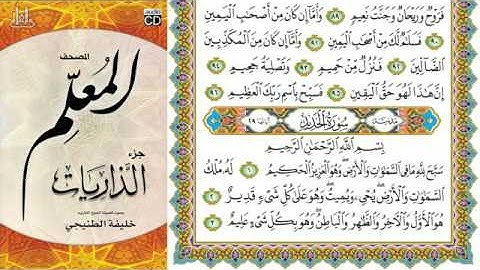 AUDIO
CD
المصحف
المُعلِّم
جزء
الذاريات
خليفة الطنيجي
فَرَوْحٌ وَرَيْحَانٌ وَجَنَّتُ نَعِيمٍ ٨٩ وَأَمَّا إِن كَانَ مِنْ أَصْحَٰبِ الْيَمِينِ
٩٠ فَسَلَٰمٌ لَّكَ مِنْ أَصْحَٰبِ الْيَمِينِ ٩١ وَأَمَّا إِن كَانَ مِنَ الْمُكَذِّبِينَ
الضَّآلِّينَ ٩٢ فَنُزُلٌ مِّنْ حَمِيمٍ ٩٣ وَتَصْلِيَةُ جَحِيمٍ ٩٤
إِنَّ هَٰذَا لَهُوَ حَقُّ الْيَقِينِ ٩٥ فَسَبِّحْ بِاسْمِ رَبِّكَ الْعَظِيمِ ٩٦
سُورَةُ الْحَدِيدِ
بِسْمِ اللَّهِ الرَّحْمَٰنِ الرَّحِيمِ
سَبَّحَ لِلَّهِ مَا فِي السَّمَٰوَٰتِ وَالْأَرْضِ وَهُوَ الْعَزِيزُ الْحَكِيمُ ١ لَهُ مُلْكُ
السَّمَٰوَٰتِ وَالْأَرْضِ يُحْيِي وَيُمِيتُ وَهُوَ عَلَىٰ كُلِّ شَيْءٍ قَدِيرٌ ٢
هُوَ الْأَوَّلُ وَالْآخِرُ وَالظَّٰهِرُ وَالْبَاطِنُ وَهُوَ بِكُلِّ شَيْءٍ عَلِيمٌ ٣